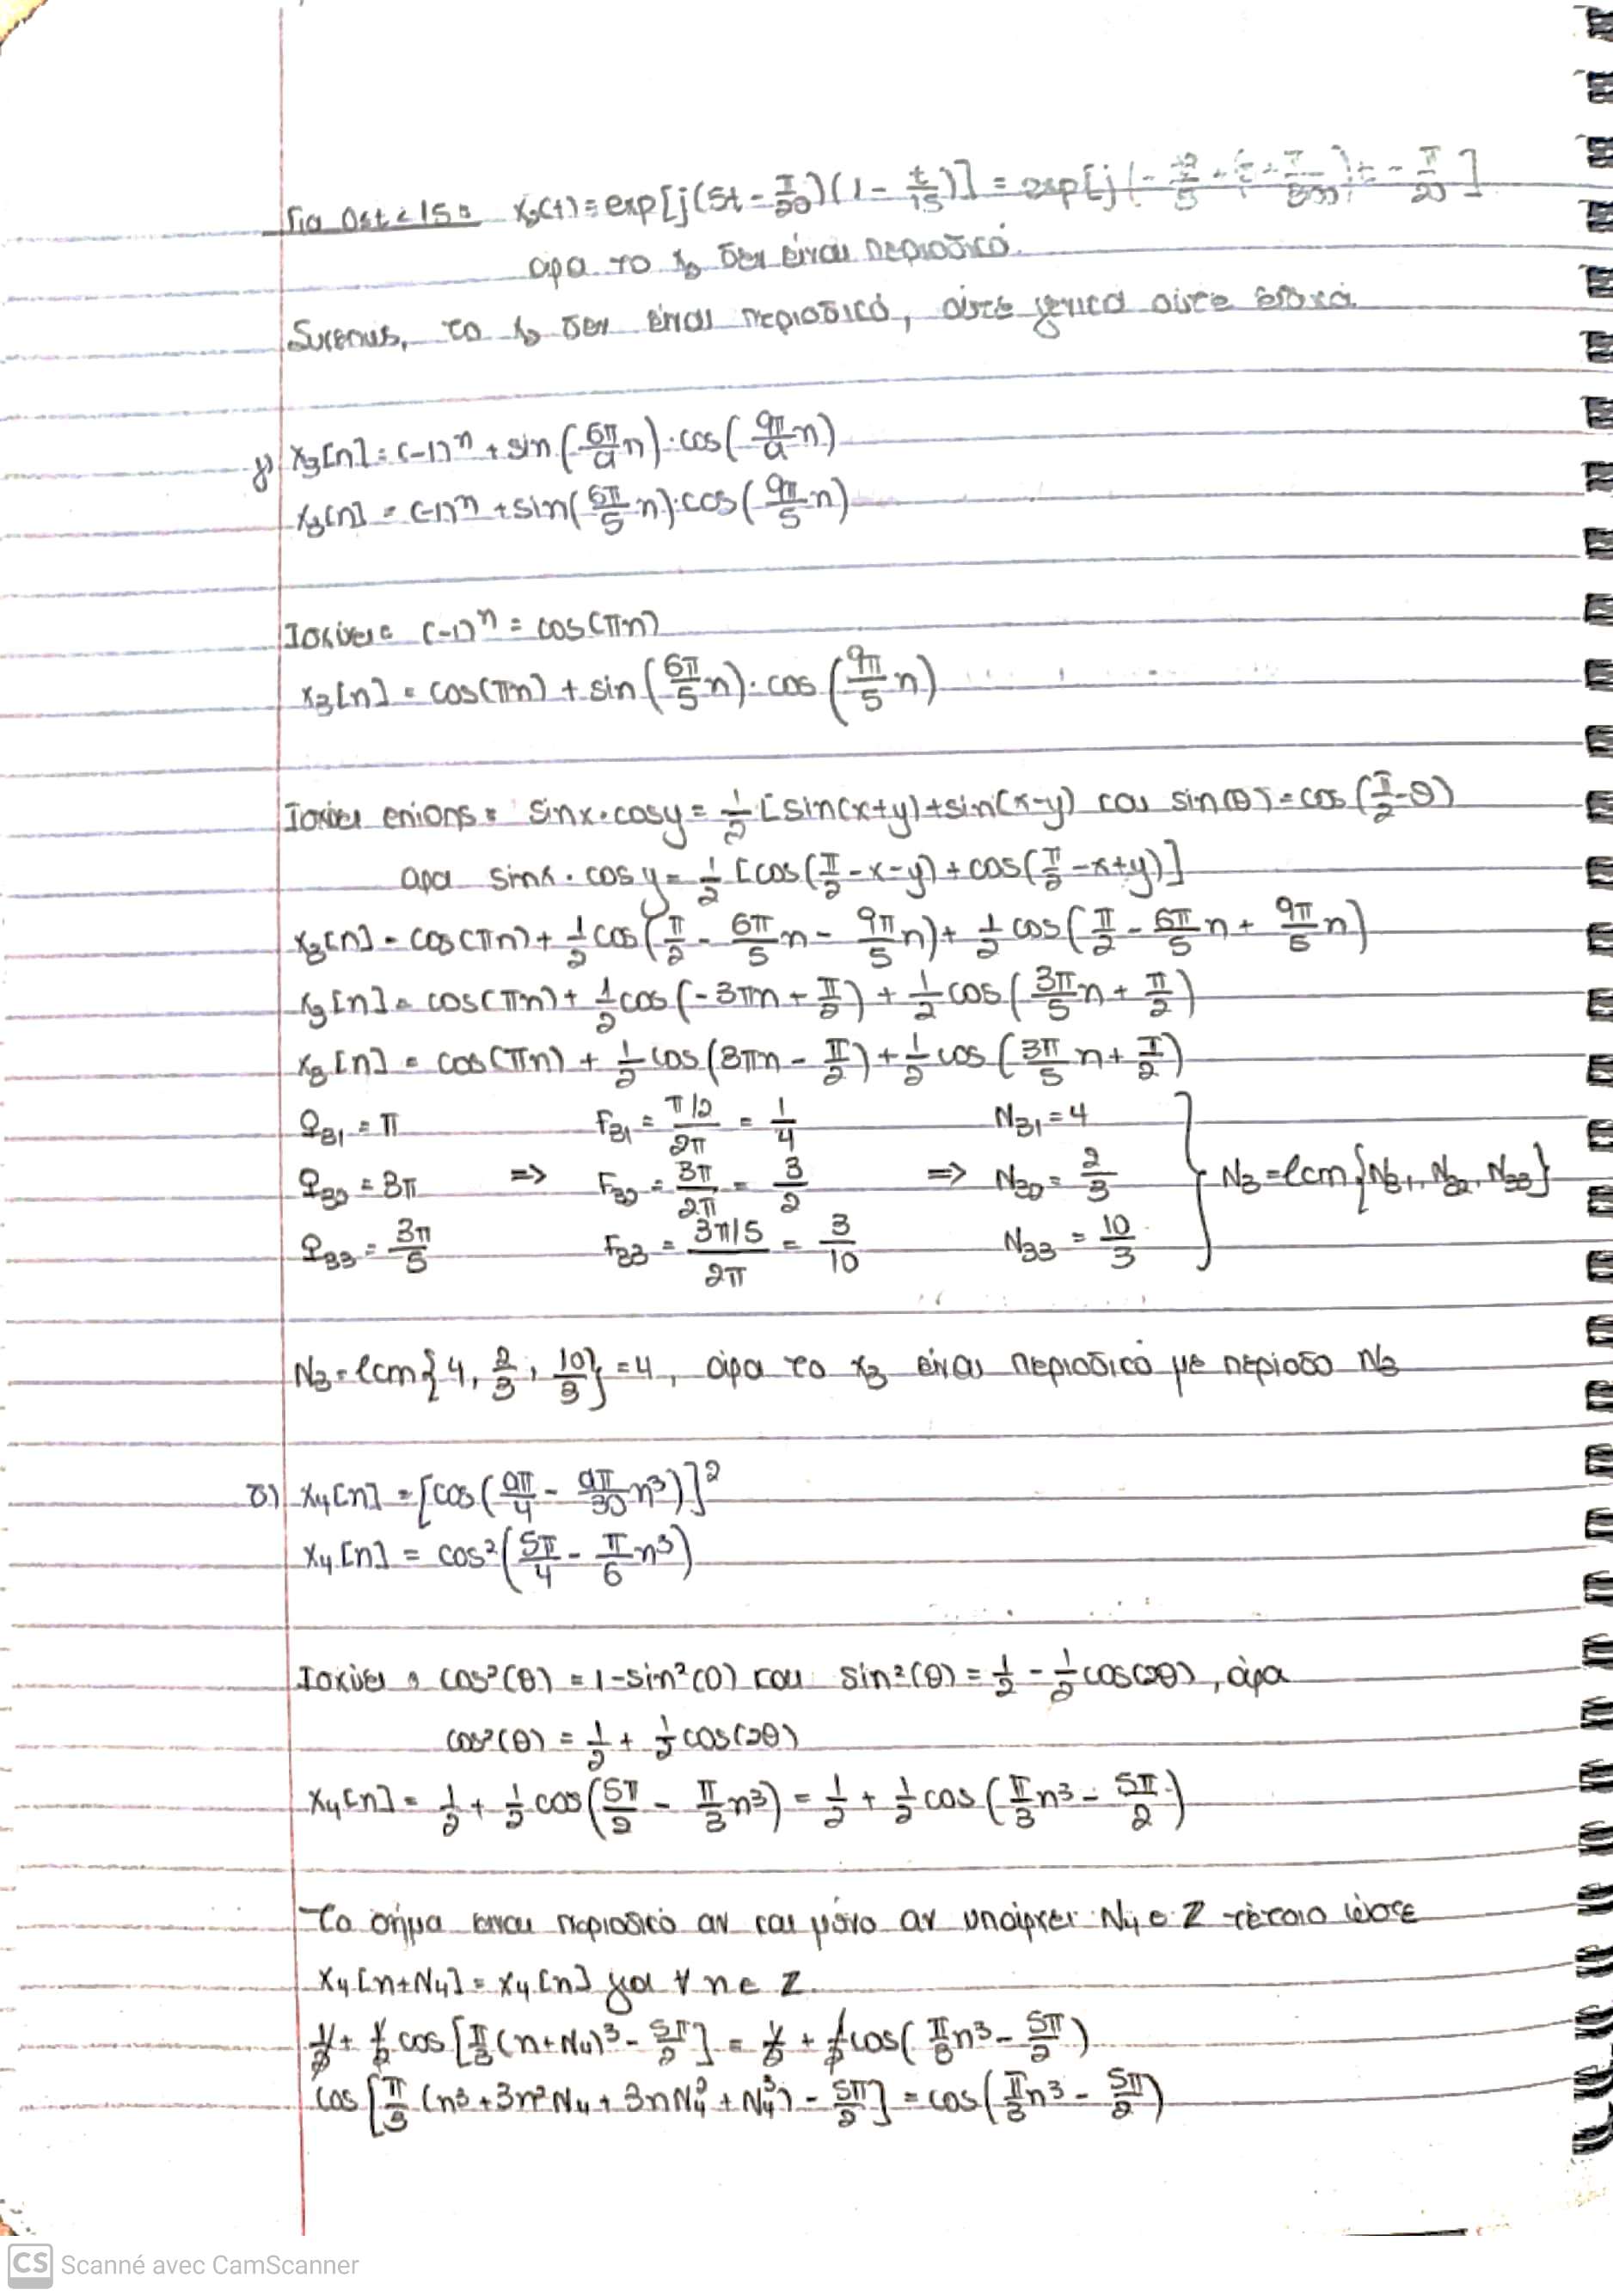 Για 0≤t<15: x₂(t)=exp[j(5t-π/20)(1-t/15)] = exp[j(
άρα το x₂ δεν είναι περιοδικό.
Συνεπώς, το x₂ δεν είναι περιοδικό, ούτε γενικά ούτε ειδικά.
γ) x₃[n]=(-1)ⁿ+sin(6π/a n)·cos(9π/a n)
x₃[n]=(-1)ⁿ+sin(6π/5 n)·cos(9π/5 n)
Ισχύει: (-1)ⁿ = cos(πn)
x₃[n] = cos(πn) + sin(6π/5 n)·cos(9π/5 n)
Ισχύει επίσης: sinx·cosy = 1/2 [sin(x+y)+sin(x-y) και sin(θ) = cos(π/2-θ)
άρα sinx·cosy = 1/2 [cos(π/2-x-y)+cos(π/2-x+y)]
x₃[n] = cos(πn) + 1/2 cos(π/2 - 6π/5 n - 9π/5 n) + 1/2 cos(π/2 - 6π/5 n + 9π/5 n)
x₃[n] = cos(πn) + 1/2 cos(-3πn + π/2) + 1/2 cos(3π/5 n + π/2)
x₃[n] = cos(πn) + 1/2 cos(3πn - π/2) + 1/2 cos(3π/5 n + π/2)
Ω₃₁ = π F₃₁ = π/2 / 2π = 1/4 N₃₁ = 4
Ω₃₂ = 3π => F₃₂ = 3π/2π = 3/2 => N₃₂ = 2/3 } N₃ = lcm{N₃₁, N₃₂, N₃₃}
Ω₃₃ = 3π/5 F₃₃ = 3π/5 / 2π = 3/10 N₃₃ = 10/3
N₃ = lcm{4, 2/3, 10/3} = 4, άρα το x₃ είναι περιοδικό με περίοδο N₃
δ) x₄[n] = [cos(aπ/4 - aπ/30 n³)]²
x₄[n] = cos²(5π/4 - π/6 n³)
Ισχύει: cos²(θ) = 1-sin²(θ) και sin²(θ) = 1/2 - 1/2 cos(2θ), άρα
cos²(θ) = 1/2 + 1/2 cos(2θ)
x₄[n] = 1/2 + 1/2 cos(5π/2 - π/3 n³) = 1/2 + 1/2 cos(π/3 n³ - 5π/2)
Το σήμα είναι περιοδικό αν και μόνο αν υπάρχει N₄ ∈ Z τέτοιο ώστε
x₄[n+N₄] = x₄[n] για ∀ n ∈ Z.
1/2 + 1/2 cos[π/3 (n+N₄)³ - 5π/2] = 1/2 + 1/2 cos(π/3 n³ - 5π/2)
cos[π/3 (n³+3n²N₄+3nN₄²+N₄³) - 5π/2] = cos(π/3 n³ - 5π/2)
CS Scanné avec CamScanner